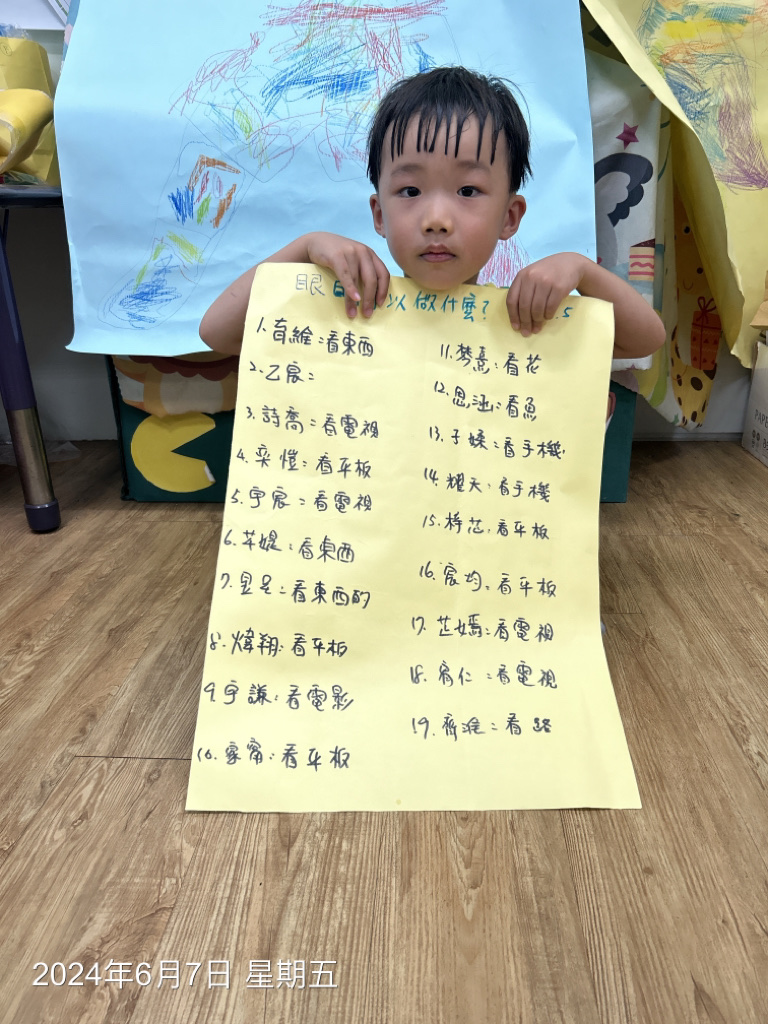 眼 以做什麼? .5
1. 育維:看東西
2. 乙宸:
3. 詩喬:看電視
4. 奕愷:看平板
5. 宇宸:看電視
6. 芊媞:看東西
7. 昱呈:看東西的
8. 煒翔:看平板
9. 宇謙:看電影
10. 家甯:看平板
11. 梦熹:看花
12. 思涵:看魚
13. 子媖:看手機
14. 耀天:看手機
15. 梓芯:看平板
16. 宸均:看平板
17. 芷嫣:看電視
18. 宥仁:看電視
19. 齊淮:看路
2024年6月7日 星期五
PAPE